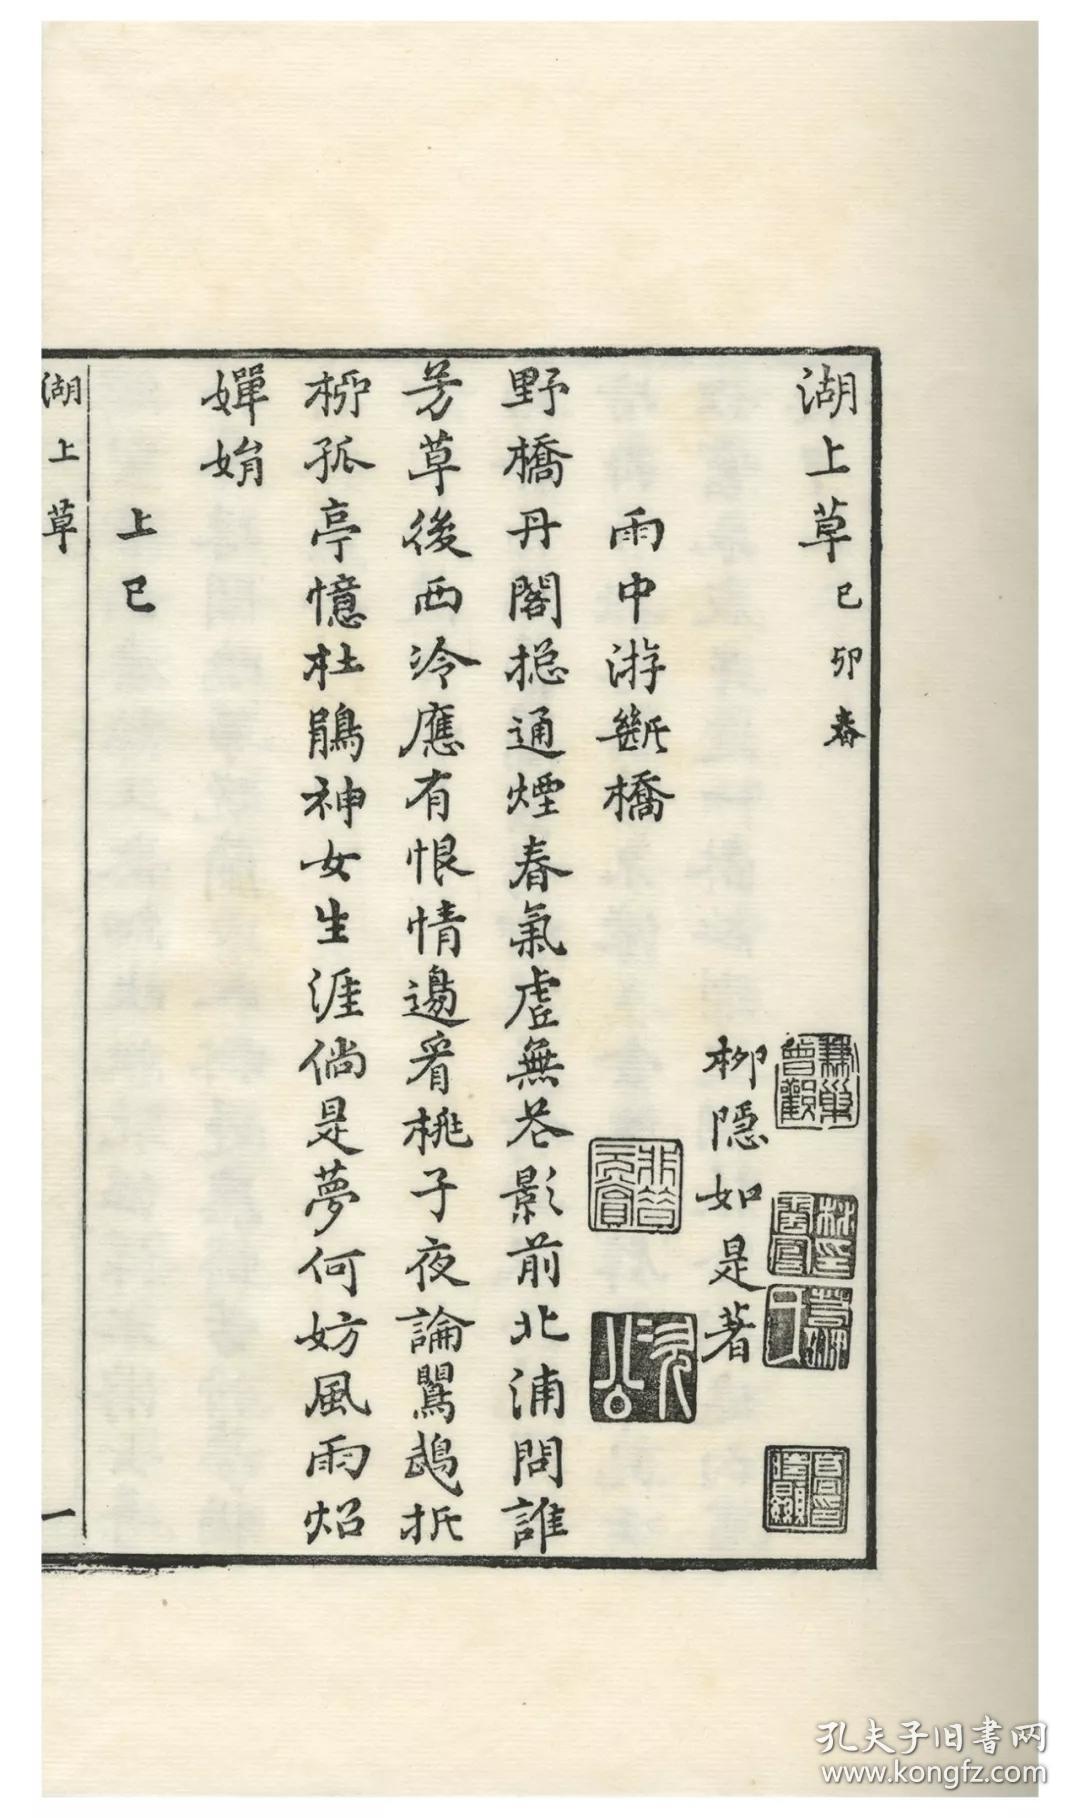 湖上草 己卯春
柳隱如是著
雨中游斷橋
野橋丹閣總通煙春氣虛無花影前北浦問誰
芳草後西泠應有恨情邊看桃子夜論鴛鴂折
柳孤亭憶杜鵑神女生涯倘是夢何妨風雨炤
嬋娟
上巳
湖上草
一
孔夫子旧书网
www.kongfz.com